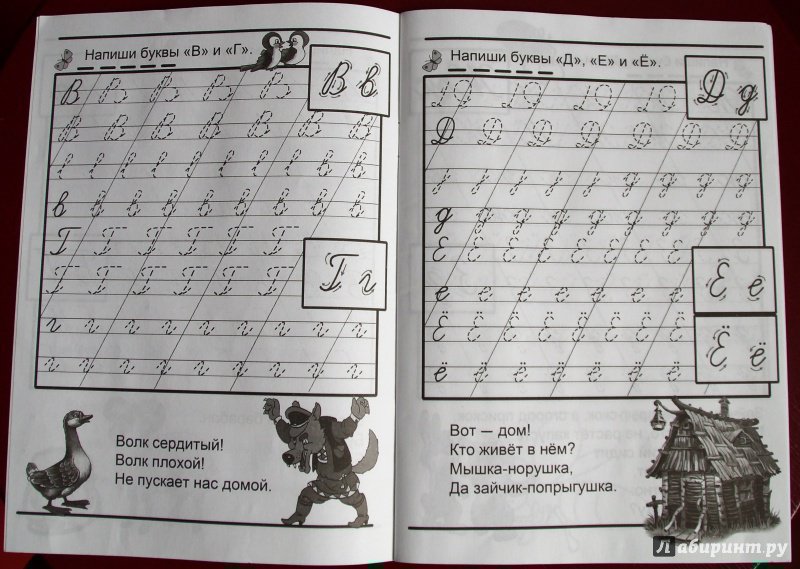 Напиши буквы «В» и «Г».
В В В В В В
В В В В В В В
в
В в
Г Г Г Г Г Г
Г Г Г Г Г Г
Г г
г г г г г г г г
г г г г г г г г
Волк сердитый!
Волк плохой!
Не пускает нас домой.
Напиши буквы «Д», «Е» и «Ё».
Д д
Д Д Д Д Д Д Д
д д д д д д д д д
Е Е Е Е Е Е Е Е
Ё е
е е е е е е е е
Ё Ё Ё Ё Ё Ё Ё Ё
Ё ё
ё ё ё ё ё ё ё ё
Вот — дом!
Кто живёт в нём?
Мышка-норушка,
Да зайчик-попрыгушка.
Лабиринт.ру